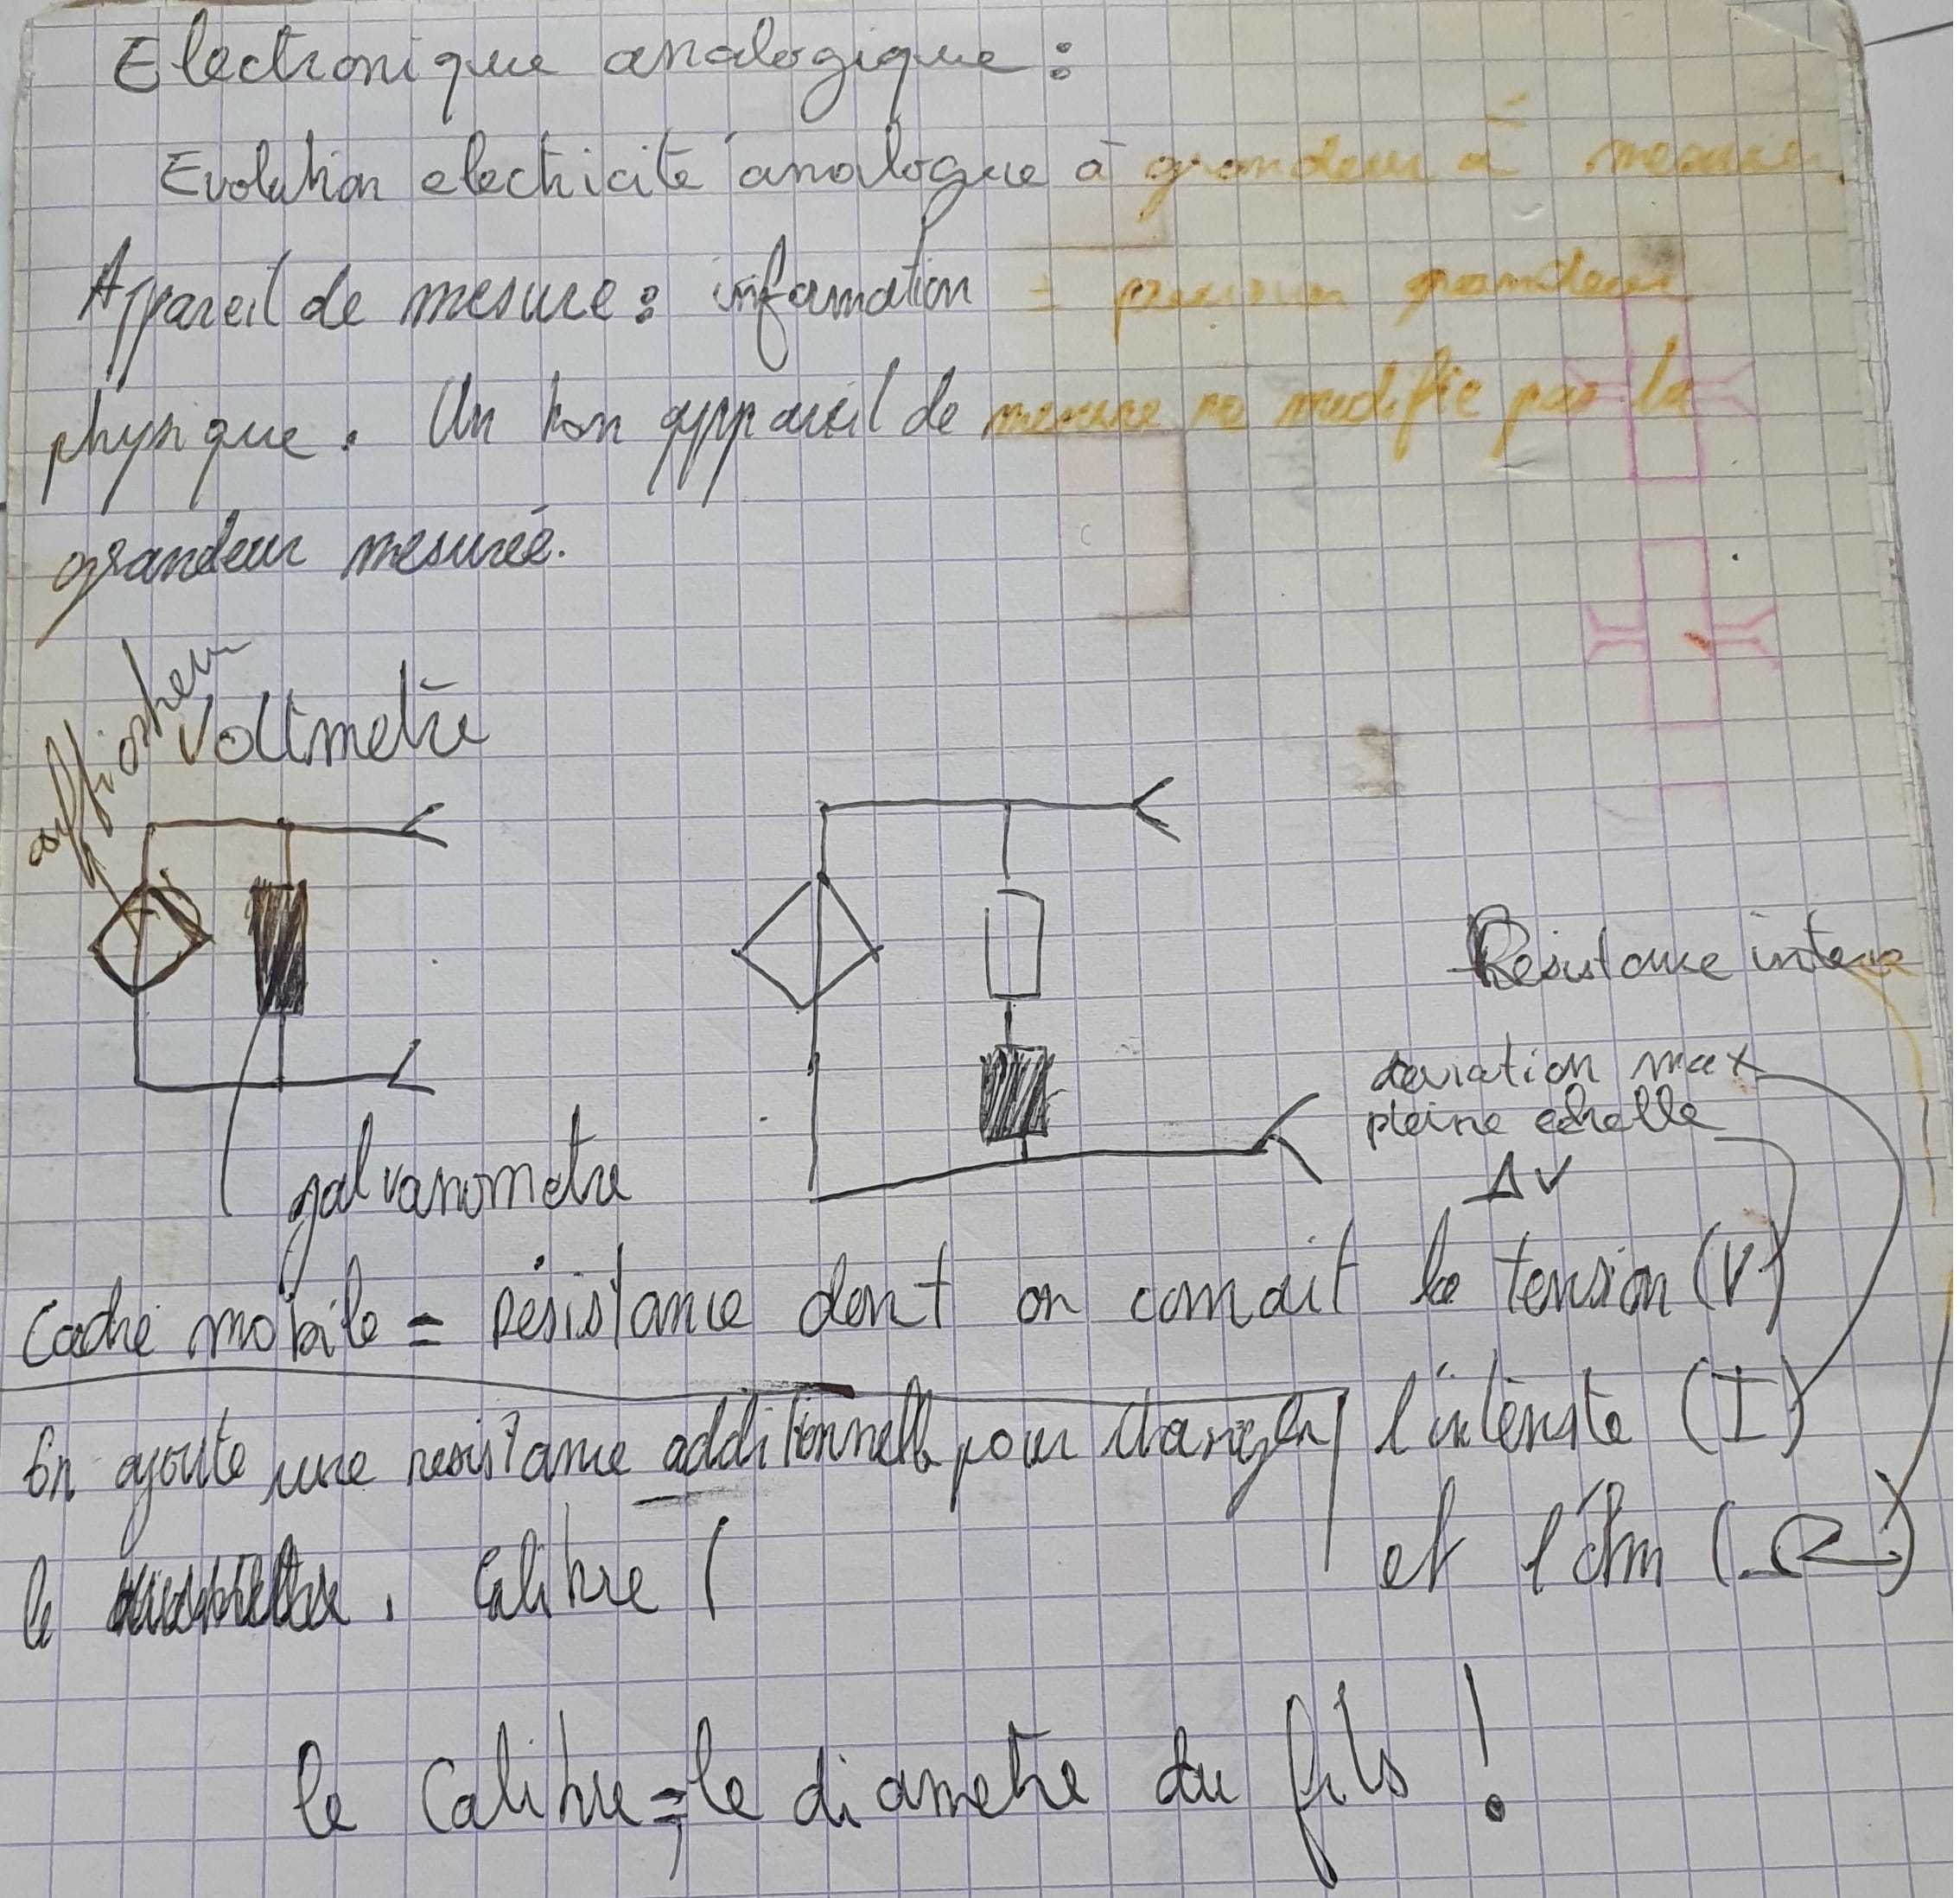 Electronique analogique :
Evolution electricité analogue à grandeur à mesurer.
Appareil de mesure : information ± precision grandeur
physique. Un bon appareil de mesure ne modifie pas la
grandeur mesurée.
afficheur
Voltmetre
Resistance interne
deviation max
pleine echelle
ΔV
galvanometre
Cadre mobile = résistance dont on connait la tension (V)
l'intensité (I)
et l'ohm (Ω)
On ajoute une resistance additionnelle pour changer
le . Calibre (
le Calibre = le diametre du fils !